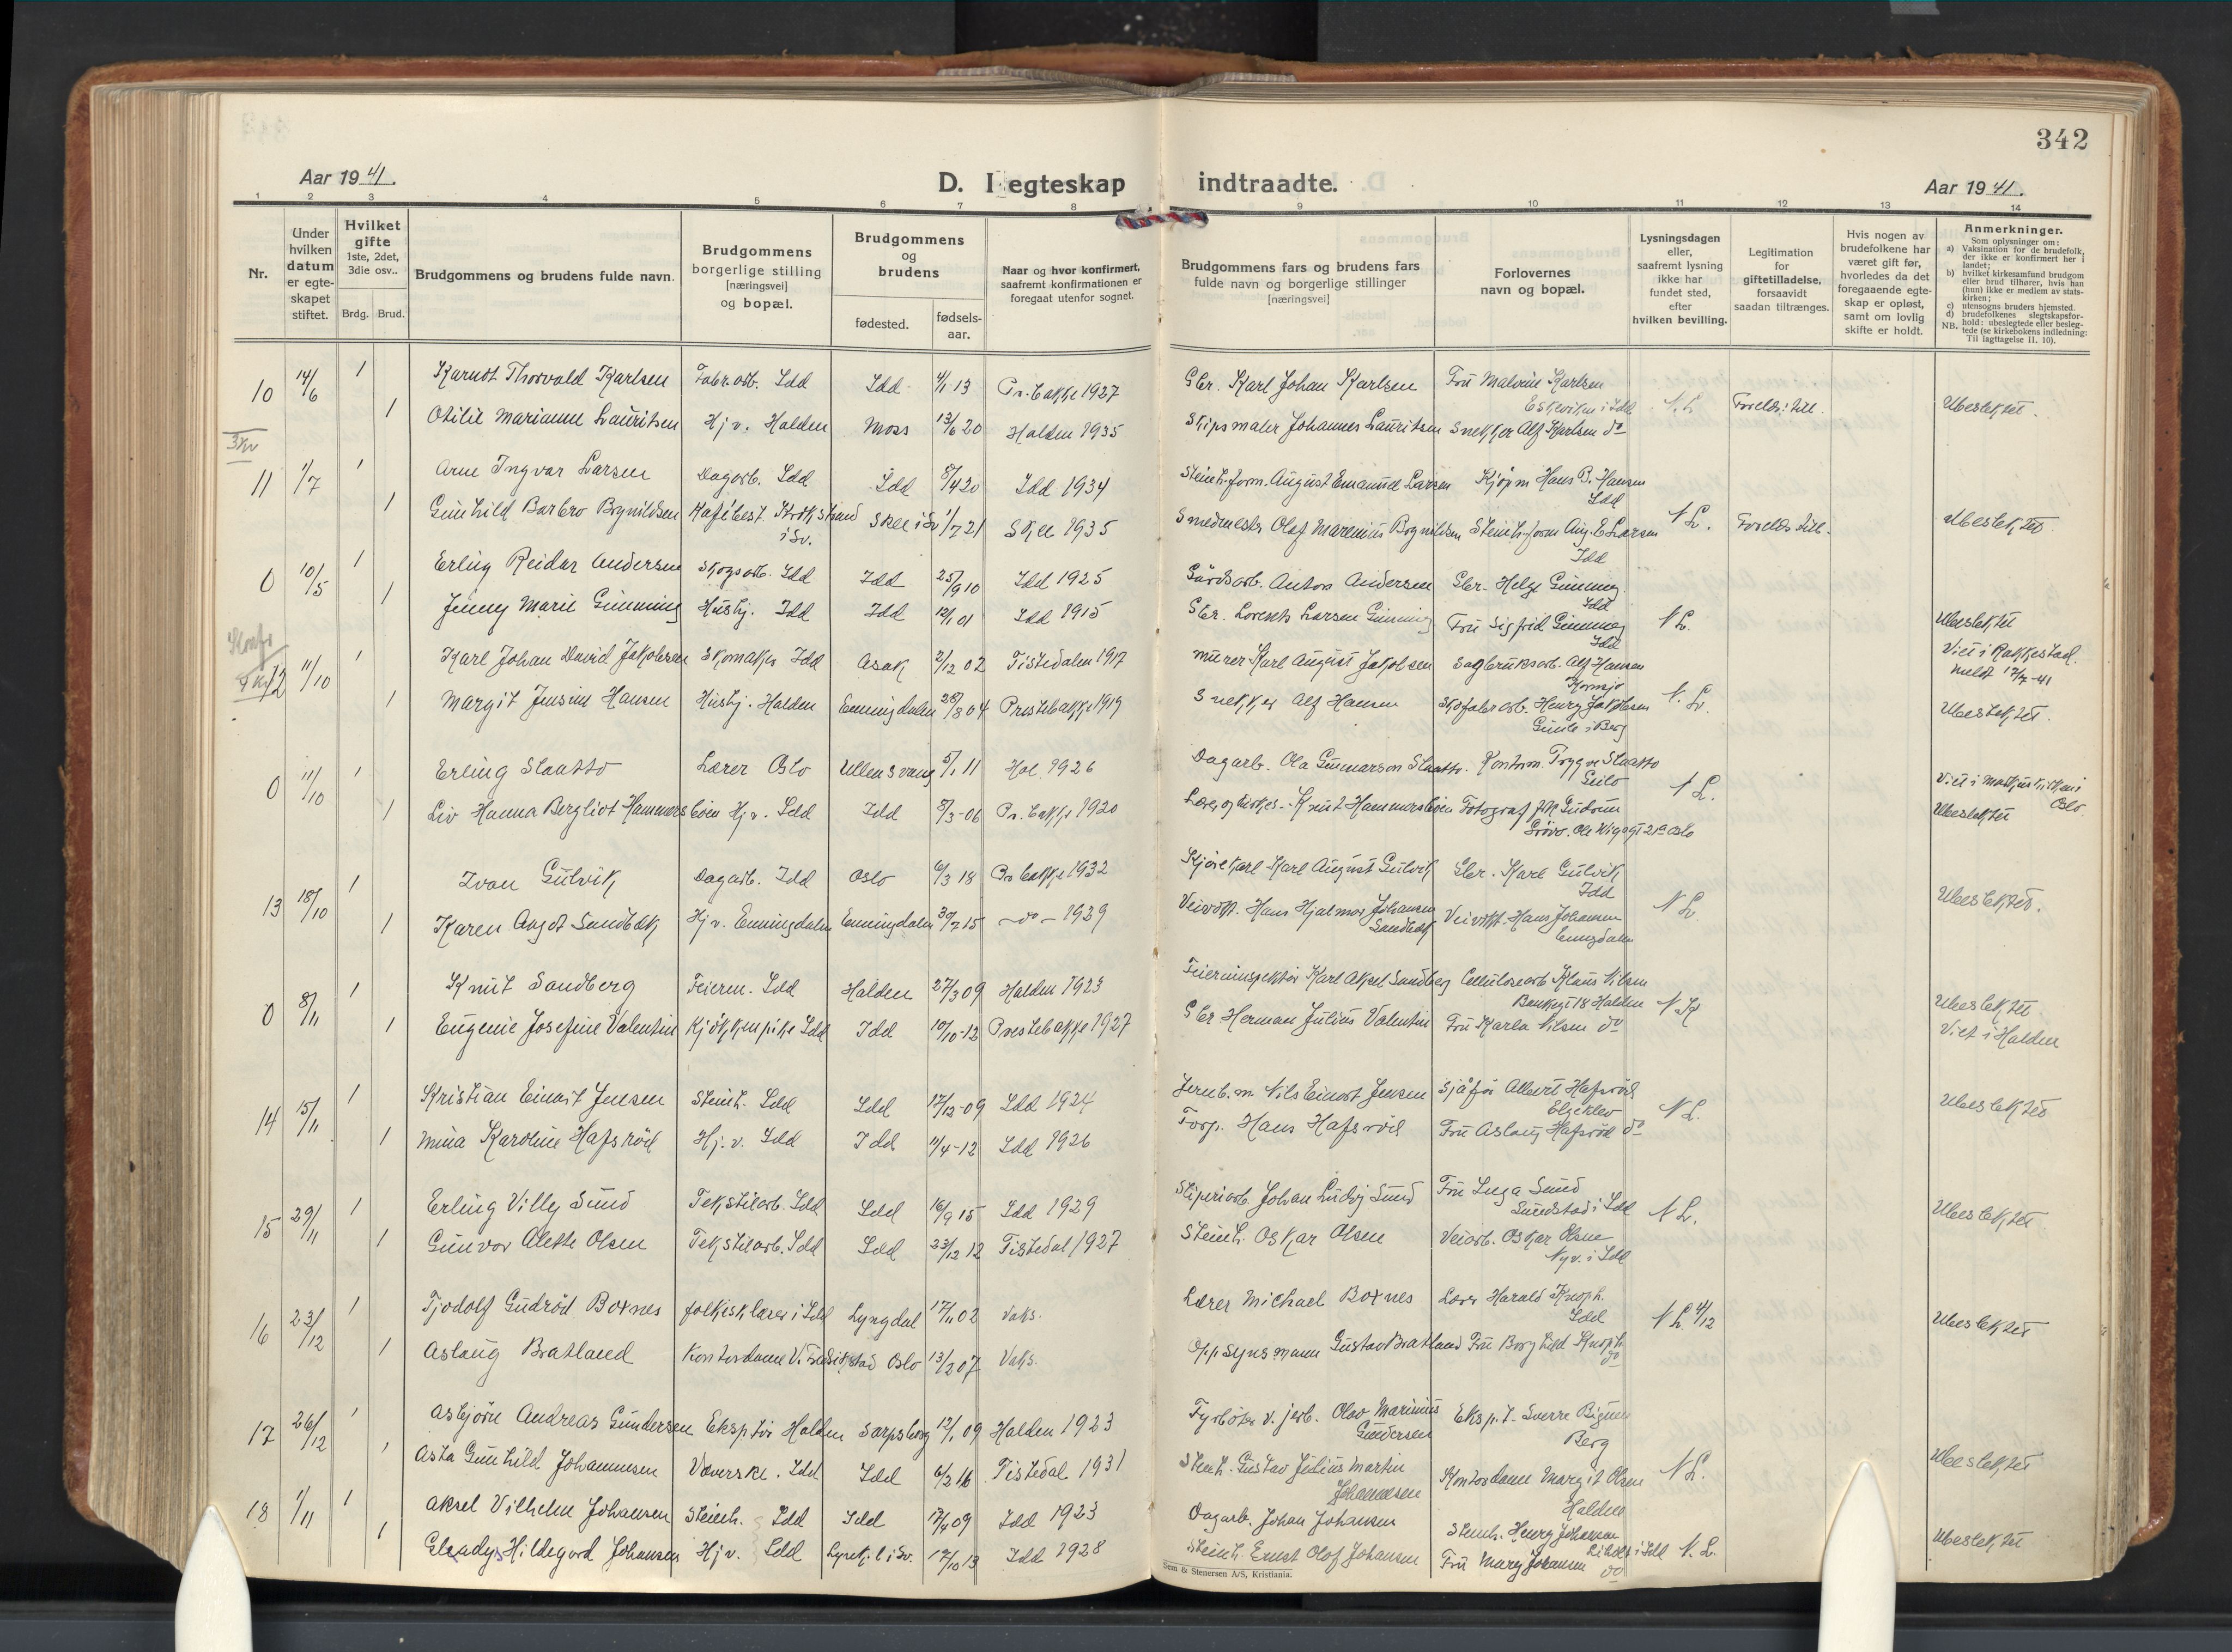 342
Aar 1941.
D. I egteskap indtraadte.
Aar 1941.
1 2 3 4 5 6 7 8 9 10 11 12 13 14
Nr.
Under hvilken datum er egteskapet stiftet.
Hvilket gifte 1ste, 2det, 3die osv..
Brdg. Brud.
Brudgommens og brudens fulde navn.
Brudgommens borgerlige stilling [næringsvei] og bopæl.
Brudgommens og brudens
fødested.
fødselsaar.
Naar og hvor konfirmert, saafremt konfirmationen er foregaat utenfor sognet.
Brudgommens fars og brudens fars fulde navn og borgerlige stillinger [næringsvei]
Forlovernes navn og bopæl.
Lysningsdagen eller, saafremt lysning ikke har fundet sted, efter hvilken bevilling.
Legitimation for giftetilladelse, forsaavidt saadan tiltrænges.
Hvis nogen av brudefolkene har været gift før, hvorledes da det foregaaende egteskap er opløst, samt om lovlig skifte er holdt.
Anmerkninger.
Som oplysninger om:
a) Vaksination for de brudefolk, der ikke er konfirmert her i landet;
b) hvilket kirkesamfund brudgom eller brud tilhører, hvis han (hun) ikke er medlem av statskirken;
c) utensogns bruders hjemsted.
d) brudefolkenes slegtskapsforhold: ubeslegtede eller beslegtede (se kirkebokens indledning: Til Iagttagelse II. 10).
NB.
10 14/6 1 Karndt Thorvald Karlsen Fabr.arb. Idd Idd 4/1 13 Pr.bakke 1927 Gbr. Karl Johan Karlsen Fru Malvine Karlsen
Eskeviken i Idd N.L. Forelds: till. Ubeslektet.
1 Otilie Marianne Lauritsen Hj v. Halden Moss 13/6 20 Halden 1935 Skipsmaler Johannes Lauritsen Snekker Alf Karlsen do
11 1/7 1 Arne Ingvar Larsen Dagarb. Idd Idd 8/4 20 Idd 1934 Steinh.form. August Emanuel Larsen Kjøpm Hans B. Hansen
Idd
1 Gunhild Barbro Brynildsen Kafébest. Krokstrand i Sv. Skee i Sv 1/7 21 Skee 1935 Smedmester Olaf Marenius Brynildsen Steinh.form Aug. E Larsen N L. Forelds till. Ubeslektet.
Idd
0 10/5 1 Erling Reidar Andersen Skogsarb. Idd Idd 25/9 10 Idd 1925 Gårdsarb. Anton Andersen Gbr. Helge Gimming
Idd
1 Jenny Marie Gimming Hushj. Idd Idd 12/1 01 Idd 1915 Gbr. Lorents Larsen Gimming Fru Sigfrid Gimming N L. Ubeslektet
Idd
12 11/10 1 Karl Johan David Jakobsen Skomaker Idd Asak 2/12 02 Tistedalen 1917 Murer Karl August Jakobsen Sagbruksarb. Alf Hansen
Kornsjø
Viet i Rakkestad.
1 Margit Jensine Hansen Hushj. Halden Enningdalen 28/8 04 Prestebakke 1919 Snekker Alf Hansen Skofabr.arb. Henry Jakobsen N. L. Ubeslektet.
0 11/10 1 Erling Slaatto Lærer Oslo Ullensvang 5/1 11 Hol 1926 Dagarb. Ola Gunnarson Slaatto. Kontorm. Trygve Slaatto
Geilo N L.
1 Liv Hanna Bergliot Hammersbøen Hj v. Idd Idd 8/3-06 Pr.bakke 1920 Knut Hammersbøen Fotograf Gudrun
Ubeslektet
13 18/10 1 Ivan Gulvik Dagarb. Idd Oslo 6/3 18 Pr.bakke 1932 Kjørekarl Karl August Gulvik Gbr. Karl Gulvik
Idd N L. Ubeslektet.
1 Karen Angot Sandbæk Hj v. Enningdalen Enningdalen 30/7 15 -do- 1929 Veivokt. Hans Hjalmar Johansen Sandbæk Veivokt. Hans Johansen
Enngdalen
0 8/11 1 Knut Sandberg Feierm. Idd Halden 27/3 09 Halden 1923 Feierinspektør Karl Aksel Sandberg Cellulosearb Klaus Nilsen
Bankgt 18 Halden N L. Ubeslektet.
1 Eugenie Josefine Valentin Kjøkkenpike Idd Idd 10/10-12 Prestebakke 1927 Gbr Herman Julius Valentin Fru Karla Nilsen do Viet i Halden
14 15/11 1 Kristian Einart Jensen Steinh. Idd Idd 17/12-09 Idd 1924 Jernb.m. Nils Einart Jensen Sjåfør Albert Hafsrød
N L. Ubeslektet
1 Mina Karoline Hafsrød Hj. v. Idd Idd 11/4-12 Idd 1926 Forp. Hans Hafsrød Fru Aslaug Hafsrød do
15 29/11 1 Erling Villy Sund Tekstilarb. Idd Idd 16/9 15 Idd 1929 Sliperiarb. Johan Ludvig Sund Fru Inga Sund
Sundstad i Idd N L. Ubeslektet
1 Gunvor Alette Olsen Tekstilarb. Idd Idd 23/12 12 Tistedal 1927 Steinh. Oskar Olsen Veiarb. Oskar Olsen
Nyv. i Idd
16 23/12 1 Tjodolf Gudrød Boxnes folkesk.lærer i Idd Lyngdal 17/11 02 Vaks. Lærer Michael Boxnes Lærer Harald Knoph
Idd N L. 4/12 Ubeslektet
1 Aslaug Bratland Kontordame V. Fredrikstad Oslo 13/2 07 Vaks. Oppsynsmann Gustav Bratland Fru Borghild Knoph
do
17 26/12 1 Asbjørn Andreas Gundersen Ekspeditør Halden Sarpsborg 12/1 09 Halden 1923 Fyrbøter v. jerb. Olav Marinius Gundersen Eksp.t. Sverre Bigum
Berg
1 Asta Gunhild Johannesen Væverske. Idd Idd 6/2 16 Tistedal 1931 Steinh. Gustav Julius Martin Johannesen Kontordame Margit Olsen N L. Ubeslektet
Halden
18 1/11 1 Aksel Vilhelm Johansen Steinh. Idd Idd 17/4 09 Idd 1923 Dagarb. Johan Johansen Steinh. Henry Johansen
1 Gladys Hildegard Johansen Hj v. Idd Lysekil i Sv. 17/10 13 Idd 1928 Steinh. Ernst Olof Johansen Fru Mary Johansen do N. L. Ubeslektet
Sem & Stenersen A/S, Kristiania.